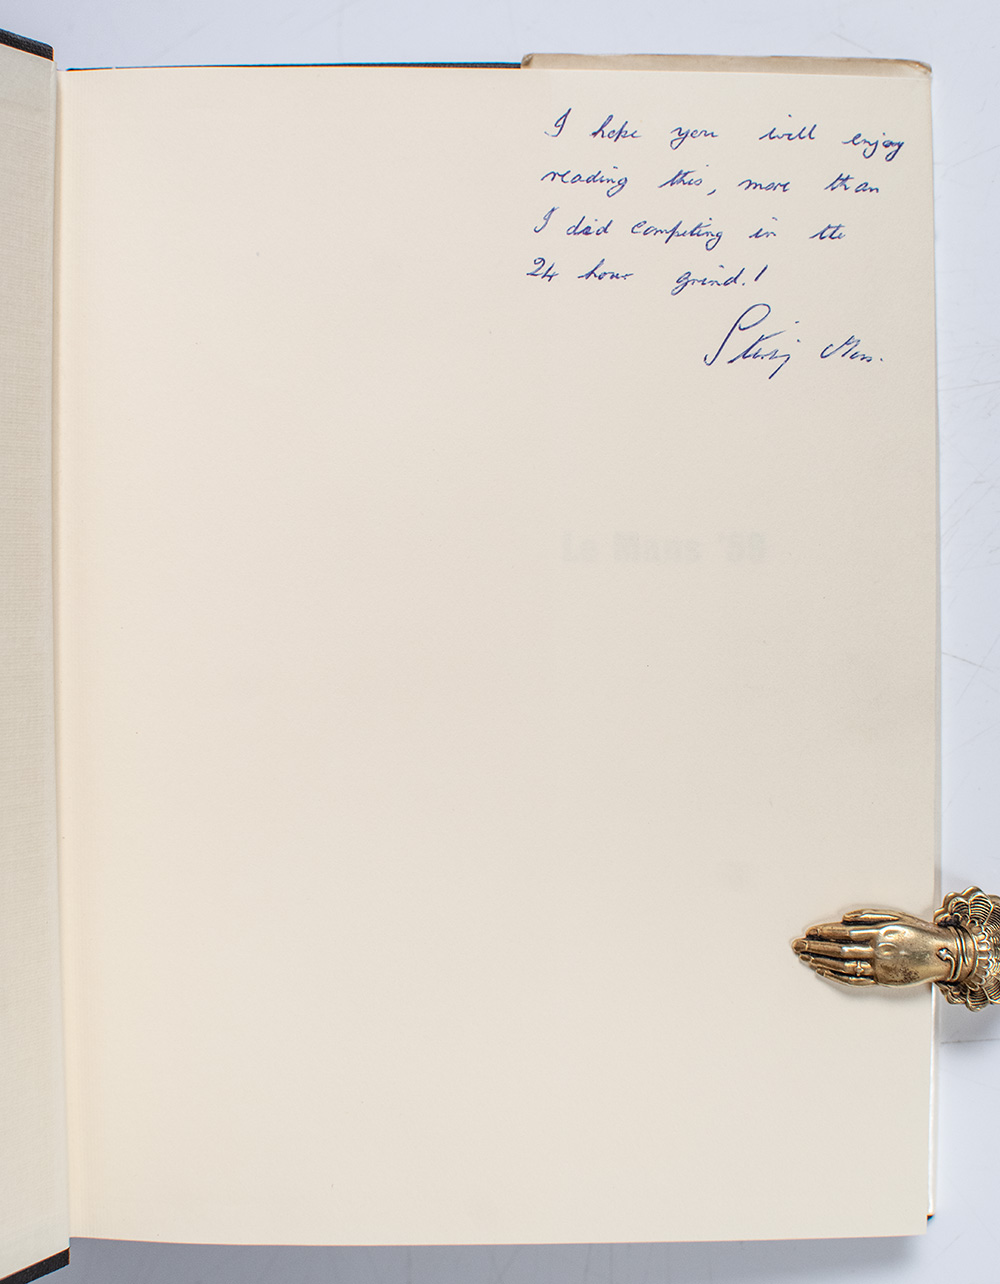 I hope you will enjoy
reading this, more than
I did competing in the
24 hour grind.!
Stirling Moss.
Le Mans '59